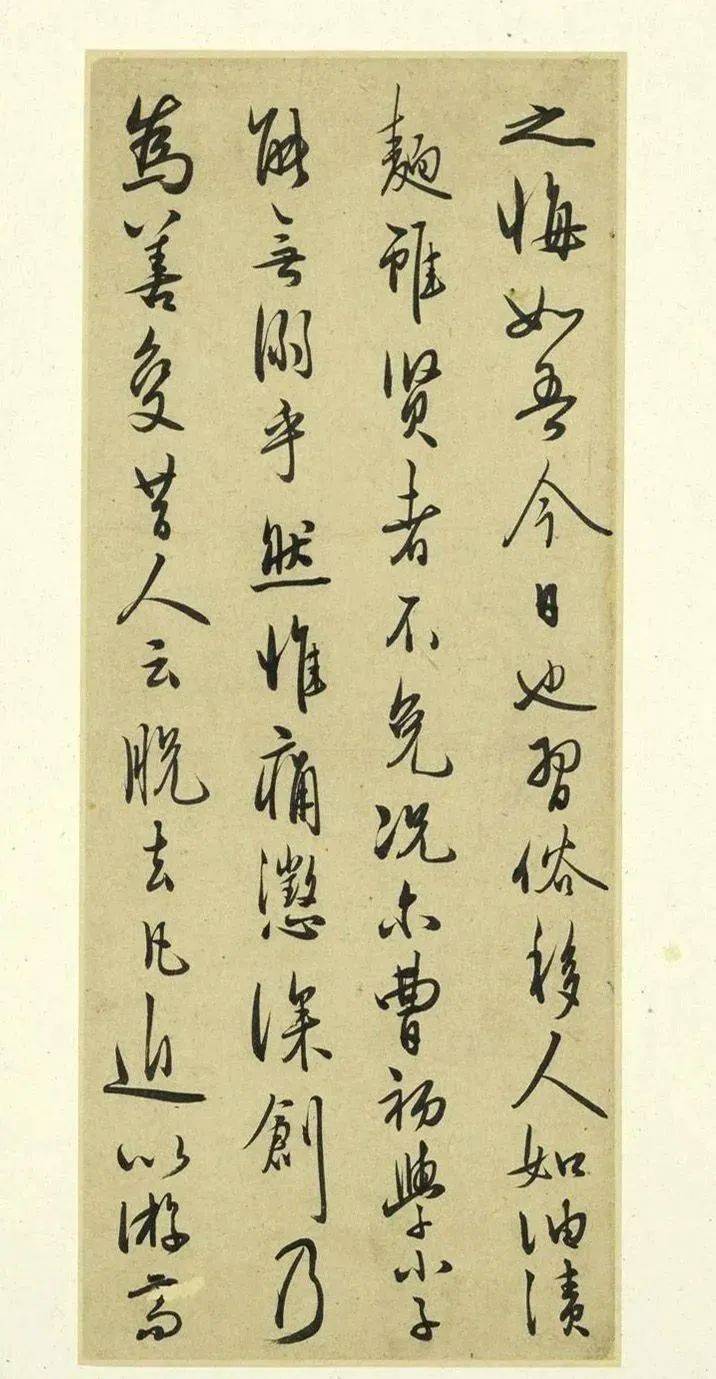 之悔如吾今日也習俗移人如油漬
麵雖賢者不免況尒曹初學小子
能無溺乎然惟痛懲深創乃
為善變昔人云脫去凡近以游高